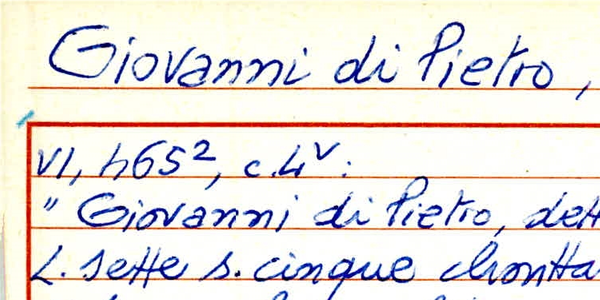 Giovanni di Pietro,
VI, h652, c.4v:
" Giovanni di Pietro, dett
L. sette s. cinque chontta